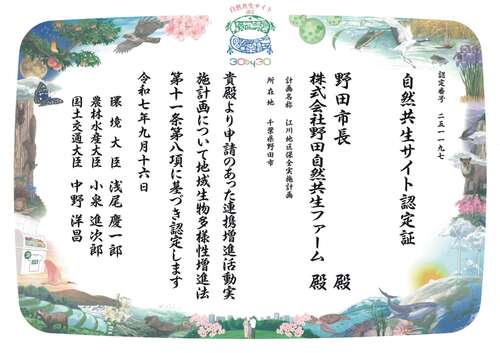 自然共生サイト
認定
30by30
認定番号　二五-一-一九七
自然共生サイト認定証
野田市長　殿
株式会社野田自然共生ファーム　殿
計画名称　江川地区保全実施計画
所在地　千葉県野田市
貴殿より申請のあった連携増進活動実
施計画について地域生物多様性増進法
第十一条第八項に基づき認定します
令和七年九月十六日
環境大臣　浅尾　慶一郎
農林水産大臣　小泉　進次郎
国土交通大臣　中野　洋昌